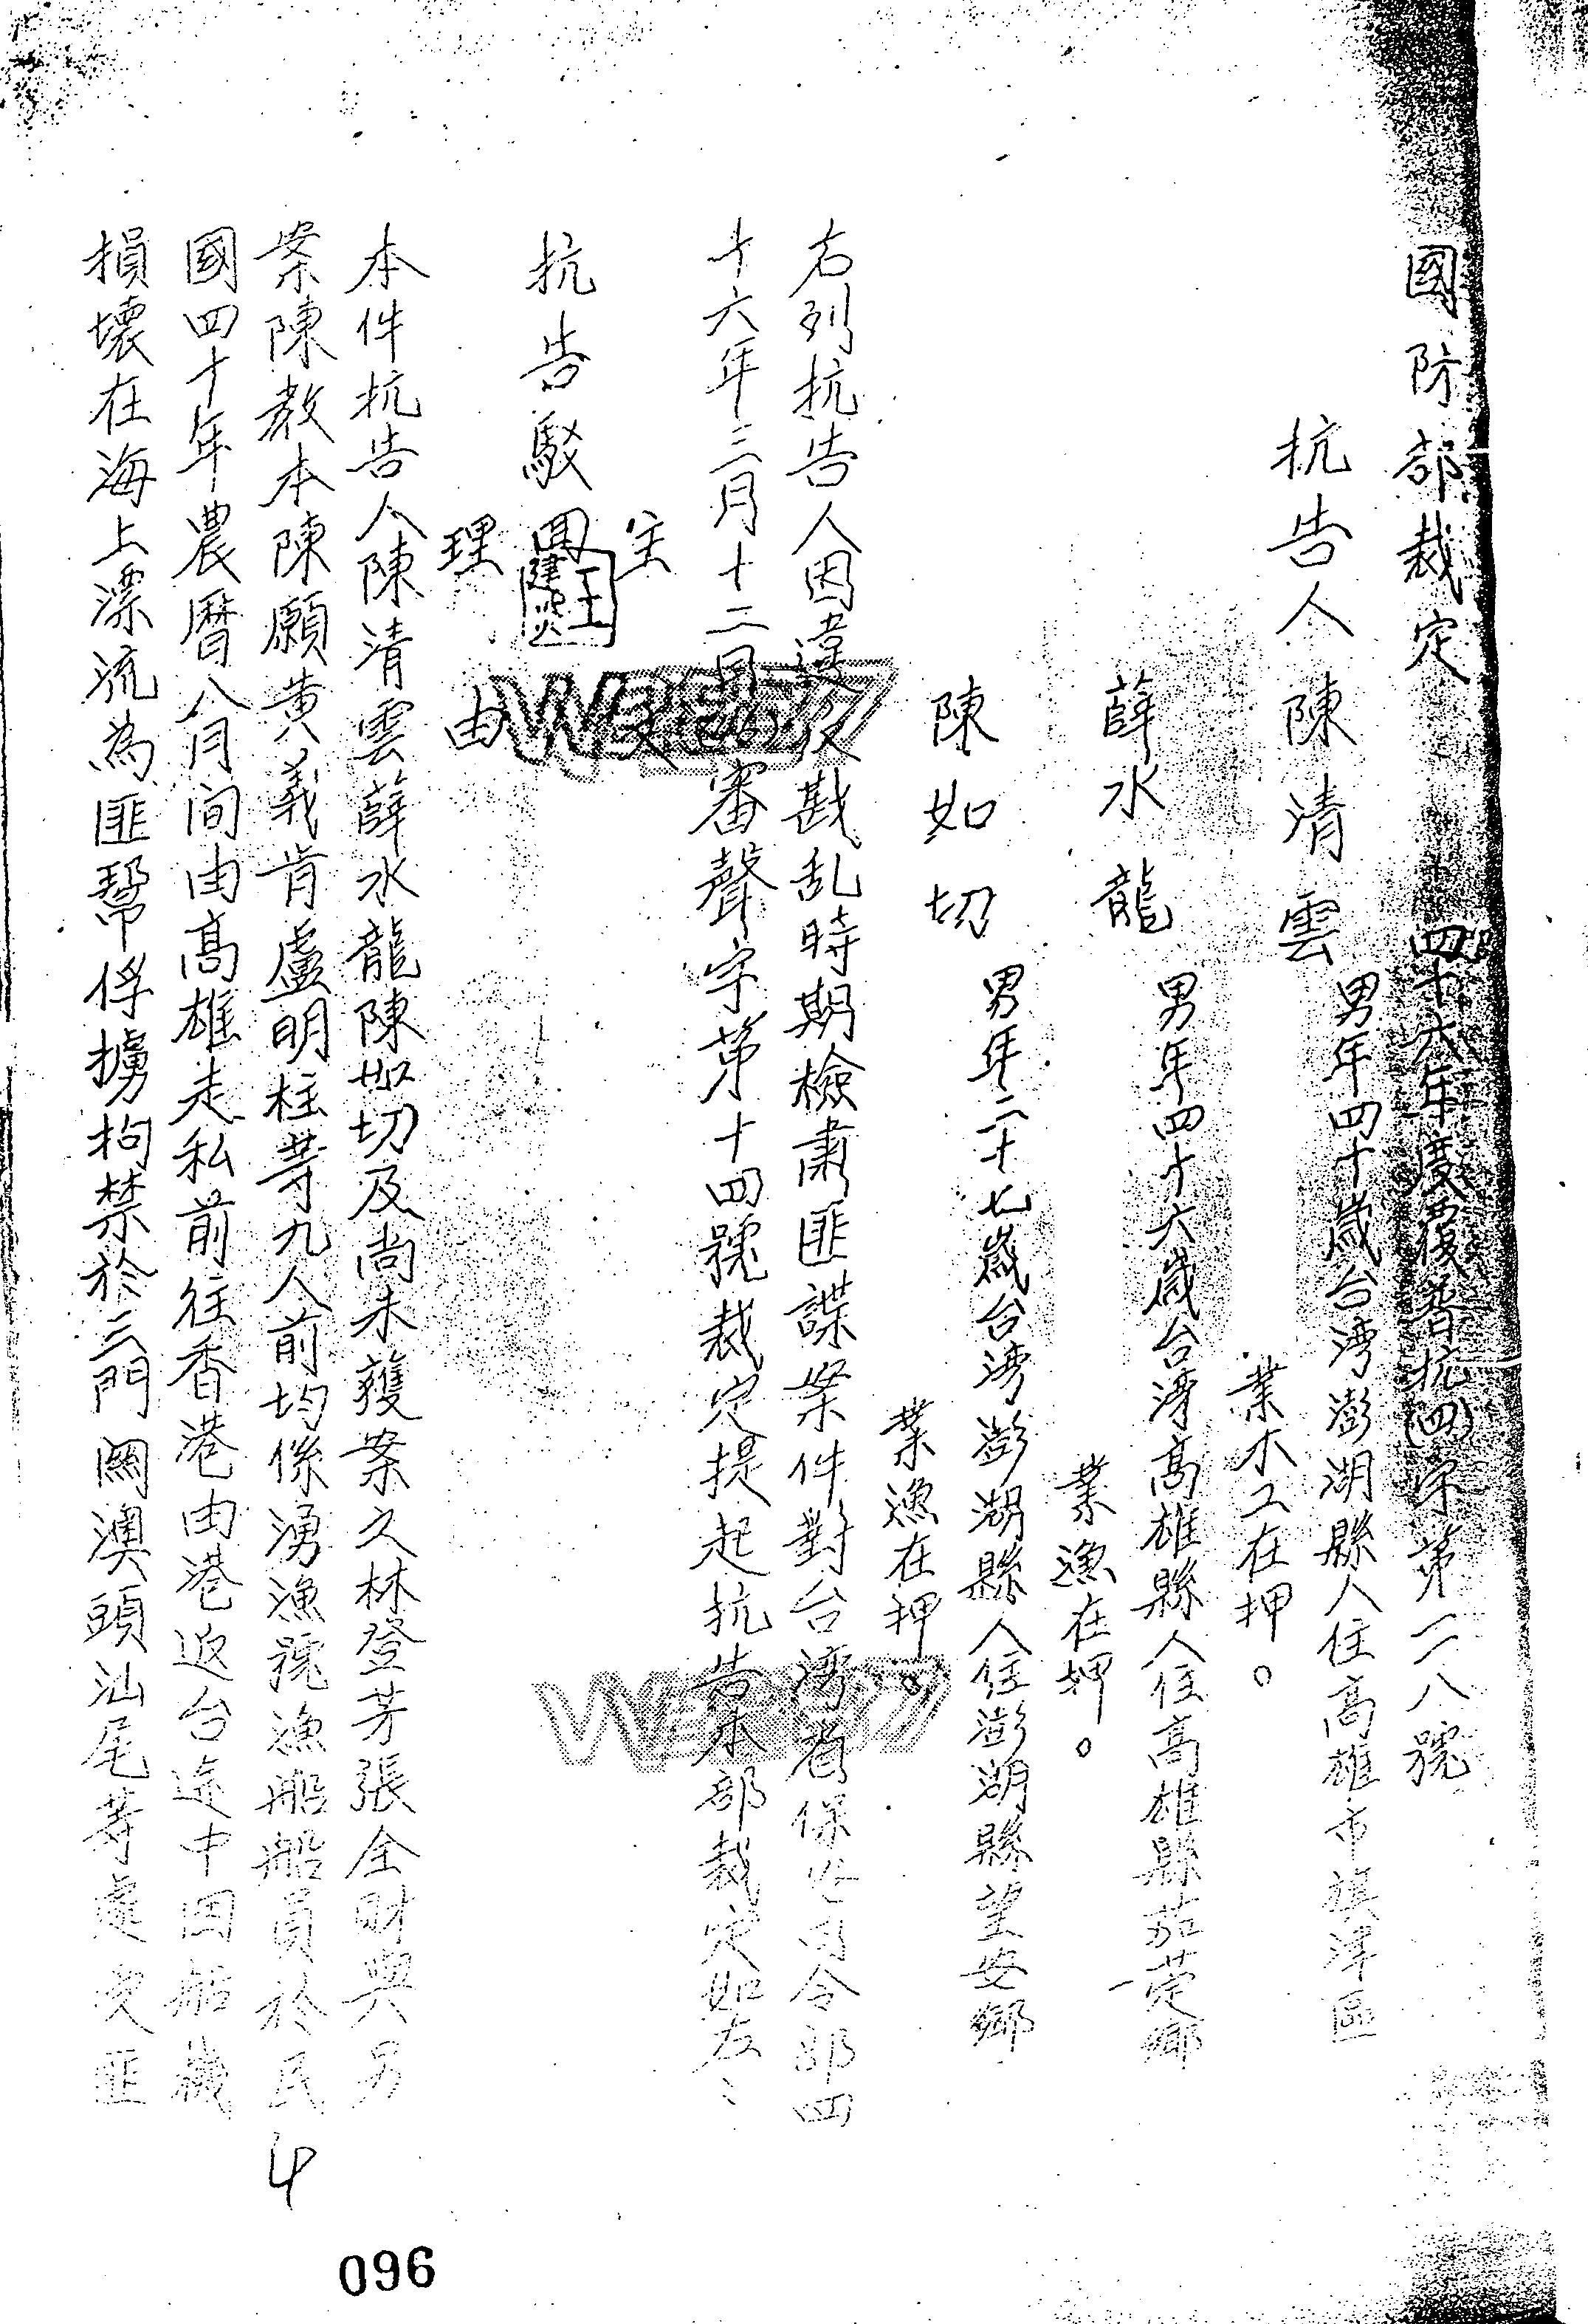 國防部裁定
四十六年度覆普抗(四)字第一一八號
抗告人陳清雲
男年四十歲台湾澎湖縣人住高雄市旗津區
業木工在押。
薛水龍
男年四十六歲台湾高雄縣人住高雄縣茄萣鄉
業漁在押。
陳如切
男年二十七歲台湾澎湖縣人住澎湖縣望安鄉
業漁在押。
右列抗告人因違反戡乱時期檢肅匪諜案件對台湾省保安司令部四
十六年三月十二日審聲字第十四號裁定提起抗告本部裁定如左：
主文
抗告駁回
王建炎
理由
本件抗告人陳清雲薛水龍陳如切及尚未獲案之林登芳張全財與另
案陳教本陳願黃義肯盧明柱等九人前均係湧漁號漁船船員於民
國四十年農曆八月间由高雄走私前往香港由港返台途中因船機
損壞在海上漂流為匪幫俘擄拘禁於三門闗澳頭汕尾等處受匪
4
096